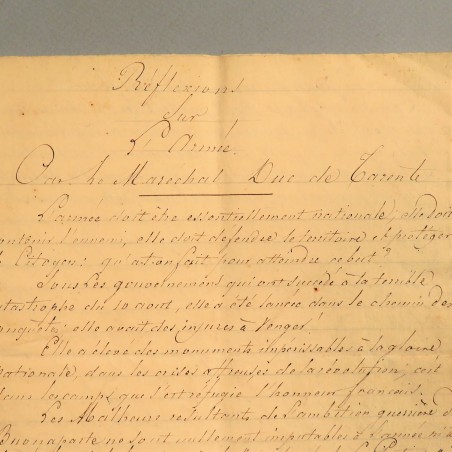 Réflexions
Sur
L'Armée.
Par Le Maréchal Duc de Tarente
L'armée doit être essentiellement nationale, elle doit
contenir l'ennemi, elle doit défendre le territoire et protéger
le Citoyen: qu'a-t-on fait pour atteindre ce but?
Sous Les gouvernemens qui ont succédé à la terrible
catastrophe du 10 aout, elle a été lancée dans le chemin des
conquêtes; elle avait des injures à Venger!
Elle a élevé des monuments impérissables à la gloire
nationale, dans les crises affreuses de la révolution; c'est
dans les camps que s'est réfugié l'honneur français.
Les Malheurs résultants de l'ambition guerrière de
Buonaparte ne sont nullement imputables à l'armée